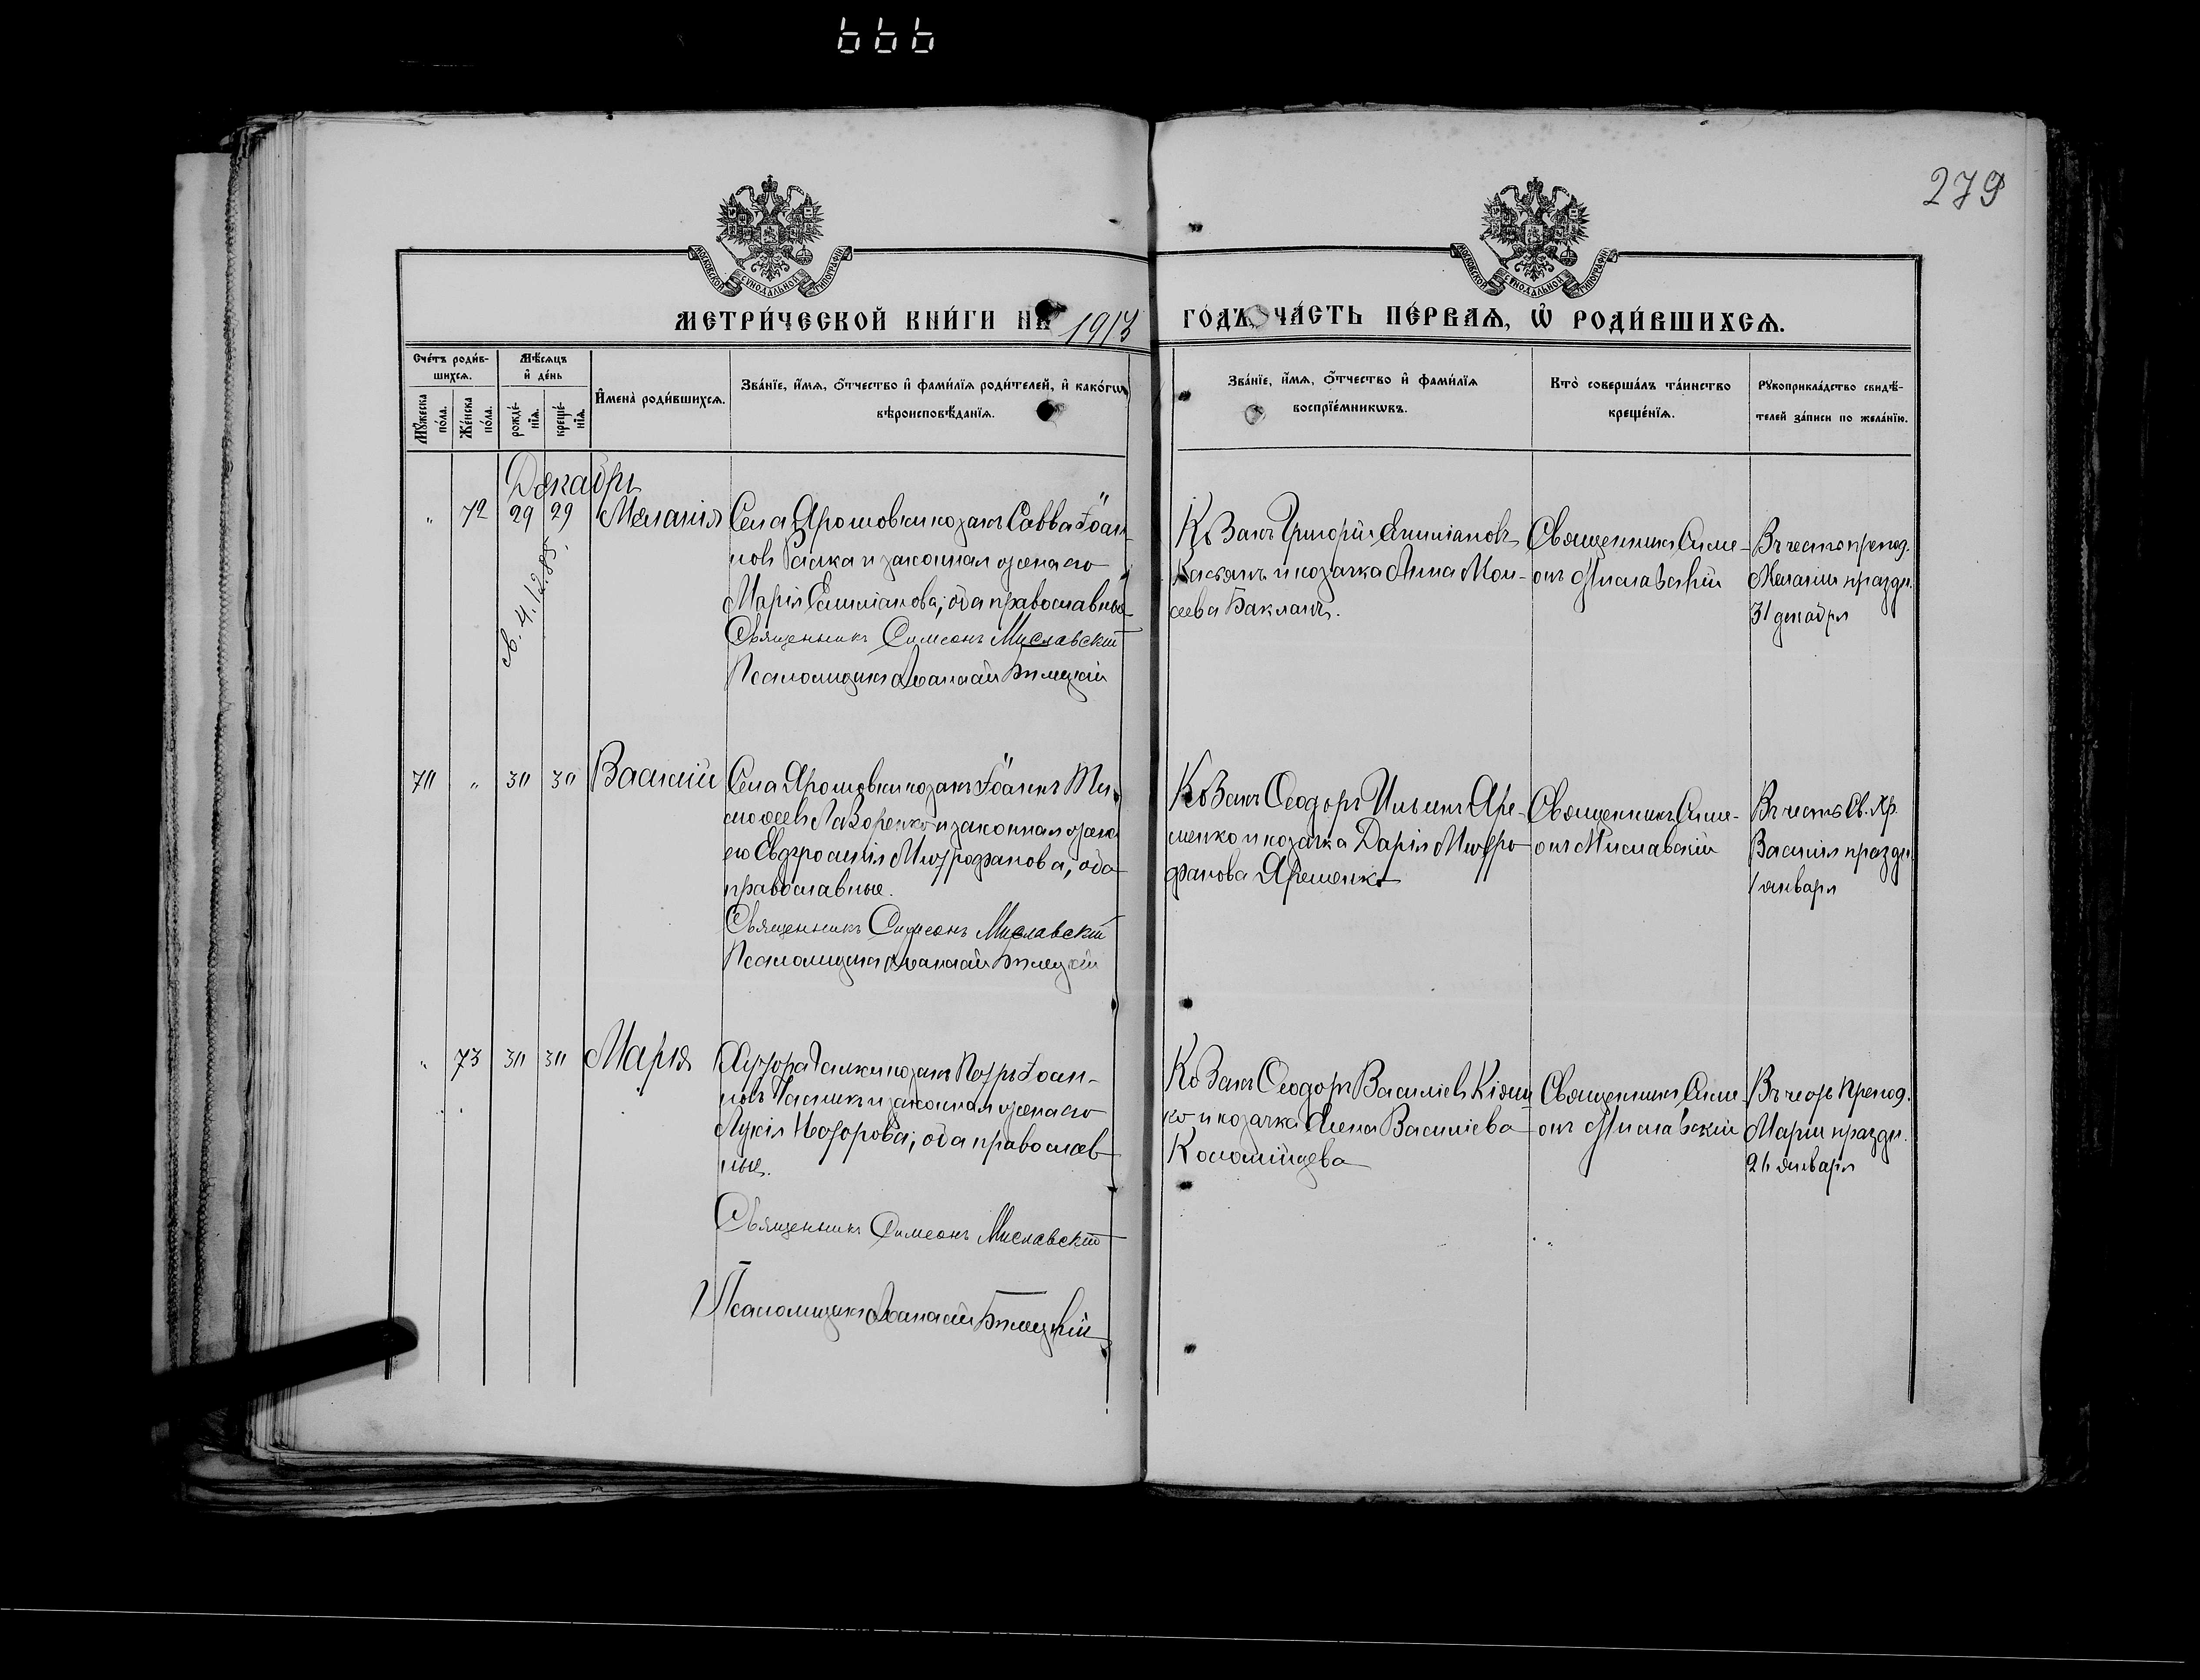 666
279
МОСКОВСКОЙ СѴНОДАЛЬНОЙ ТИПОГРАФІИ
МОСКОВСКОЙ СѴНОДАЛЬНОЙ ТИПОГРАФІИ
МЕТРИ́ЧЕСКОЙ КНИ́ГИ НА 1913 ГО́ДЪ, ЧА́СТЬ ПЕ́РВАѦ, Ѡ҆ РОДИ́ВШИХСѦ.
Сче́тъ роди́в-
шихсѧ.
Мꙋ́жеска по́ла.
Же́нска по́ла.
Мѣ́сѧцъ
и҆ де́нь
рожде́-
нїѧ.
креще́-
нїѧ.
И҆мена̀ роди́вшихсѧ.
Зва́нїе, и҆́мѧ, ѻ҆́тчество и҆ фами́лїѧ роди́телей, и҆ како́гѡ
вѣроисповѣ́данїѧ.
Зва́нїе, и҆́мѧ, ѻ҆́тчество и҆ фами́лїѧ
воспрїе́мникѡвъ.
Кто̀ соверша́лъ та́инство
креще́нїѧ.
Рꙋкоприкла́дство свидѣ́-
телей за́писи по жела́нїю.
Декабрь
" 72 29 29 Меланія
Села Ярошовки козакъ Савва Іоан-
новъ Галка и законная жена его
Марія Емиліанова; оба православные
Священникъ Симеонъ Миславскій
Псаломщикъ Аѳанасій Бѣлецкій
4.12.85.
Козакъ Григорій Емиліановъ
Касьянъ и козачка Анна Мои-
сеева Бакланъ.
Священникъ Симе-
онъ Миславскій
Въ честь препод.
Меланіи праздн.
31 декабря
70 " 30 30 Василій
Села Ярошовки козакъ Іоаннъ Ти-
моѳеевъ Лазоренко и законная жена
его Евфросинія Митрофанова, оба
православные.
Священникъ Симеонъ Миславскій
Псаломщикъ Аѳанасій Бѣлецкій
Козакъ Ѳеодоръ Ильинъ Яре-
менко и козачка Дарія Митро-
фанова Яременко
Священникъ Симе-
онъ Миславскій
Въ честь Св. Хр.
Василія праздн.
1 января
" 73 30 30 Марія
Хутора Галки козакъ Петръ Іоан-
новъ Пасникъ и законная жена его
Лукія Ѳеодорова; оба православ-
ные.
Священникъ Симеонъ Миславскій
Псаломщикъ Аѳанасій Бѣлецкій
Козакъ Ѳеодоръ Василіевъ Кіяш-
ко и козачка Елена Василіева
Коломійцева
Священникъ Симе-
онъ Миславскій
Въ честь Препод.
Маріи праздн.
26 января